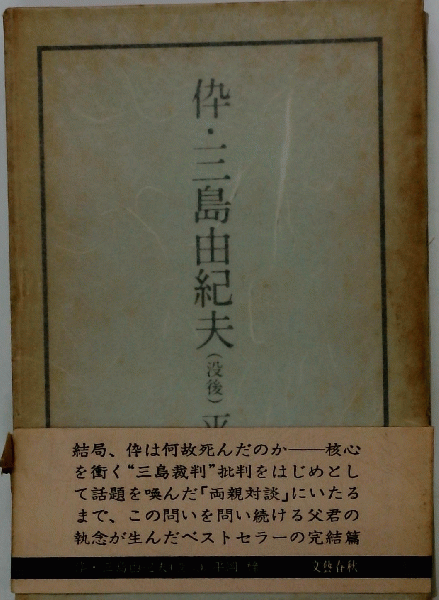 伜・三島由紀夫(没後)
結局、伜は何故死んだのか──核心
を衝く“三島裁判”批判をはじめとし
て話題を喚んだ「両親対談」にいたる
まで、この問いを問い続ける父君の
執念が生んだベストセラーの完結篇
文藝春秋